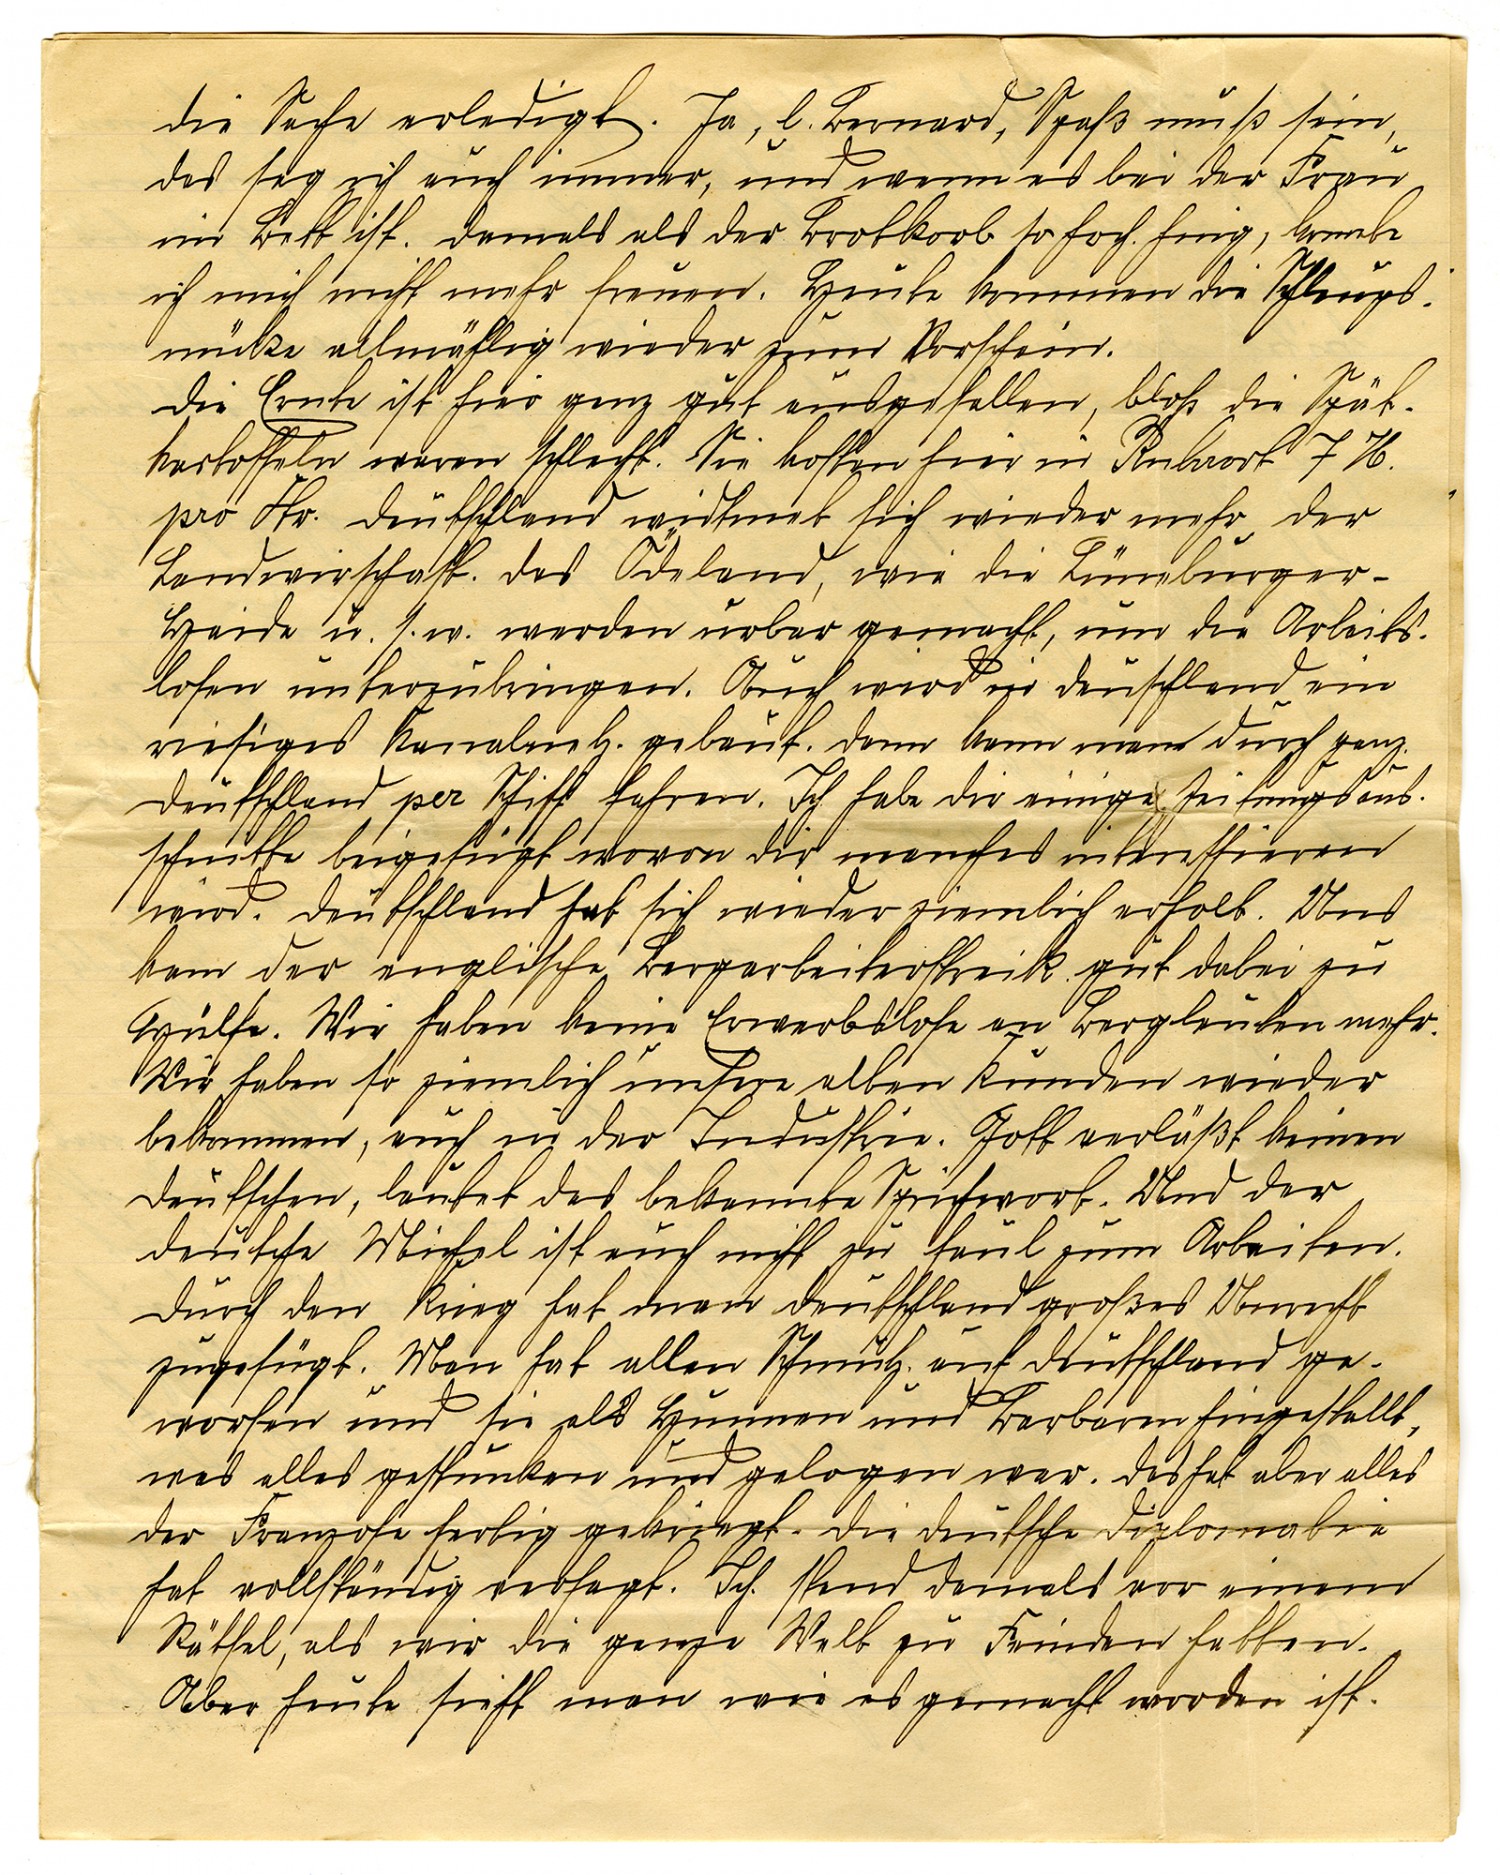 die Sache erledigt. Ja, l. Bernard, Spaß muß sein,
das sag ich auch immer, und wenn es bei der Frau
im Bett ist. Damals als der Brotkorb so hoch hing, konnte
ich mich nicht mehr freuen. Heute kommen die
allmählig wieder zum Vorschein.
Die Ernte ist hier ganz gut ausgefallen, bloß die Spät-
kartoffeln waren schlecht. Sie kosten hier in Ruhrort 7 M.
pro Ztr. Deutschland widtmet sich wieder mehr der
Landwirschaft. Das Ödeland, wie die Lüneburger-
Heide u. s. w. werden urbar gemacht, um die Arbeits-
losen unterzubringen. Auch wird in Deuschland ein
riesiges Kanalnetz gebaut. Dann kann man durch ganz
Deutschland per Schiff fahren. Ich habe dir einige Zeitungsaus-
schnitte beigefügt wovon dir manches interessieren
wird. Deutschland hat sich wieder ziemlich erholt. Uns
kam der englische Bergarbeiterstreik gut dabei zu
Hülfe. Wir haben keine Erwerbslose an Bergleuten mehr.
Wir haben so ziemlich unsere alten Kunden wieder
bekommen, auch in der Industrie. Gott verläßt keinen
Deutschen, lautet das bekannte Sprichwort. Und der
deutche Michel ist auch nicht zu faul zum Arbeiten.
Durch den Krieg hat man Deutschland großes Unrecht
zugefügt. Man hat allen Schmutz auf Deutschland ge-
worfen und sie als Hunnen und Barbaren hingestellt,
was alles gestunken und gelogen war. Das hat aber alles
der Franzose fertig gekriegt. Die deutsche Diplomatie
hat vollständig versagt. Ich stand damals vor einem
Rätsel, als wir die ganze Welt zu Feinden hatten.
Aber heute sieht man wie es gemacht worden ist.